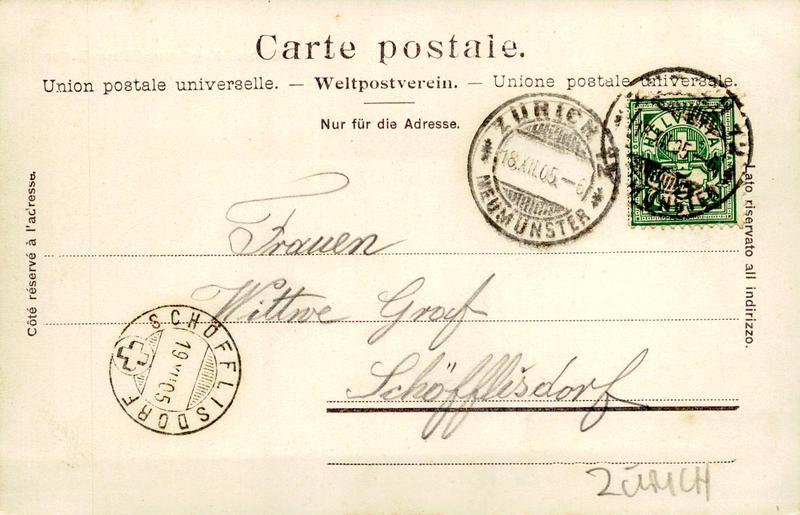 Carte postale.
Union postale universelle. — Weltpostverein. — Unione postale universale.
Nur für die Adresse.
ZÜRICH 12
18.XII.05.–6
NEUMÜNSTER
HELVETIA
5
MÜNSTER
Côté réservé à l'adresse.
Lato riservato all indirizzo.
Frauen
Wittwe Graf
Schöfflisdorf
SCHÖFFLISDORF
19 XII 05
ZÜRICH